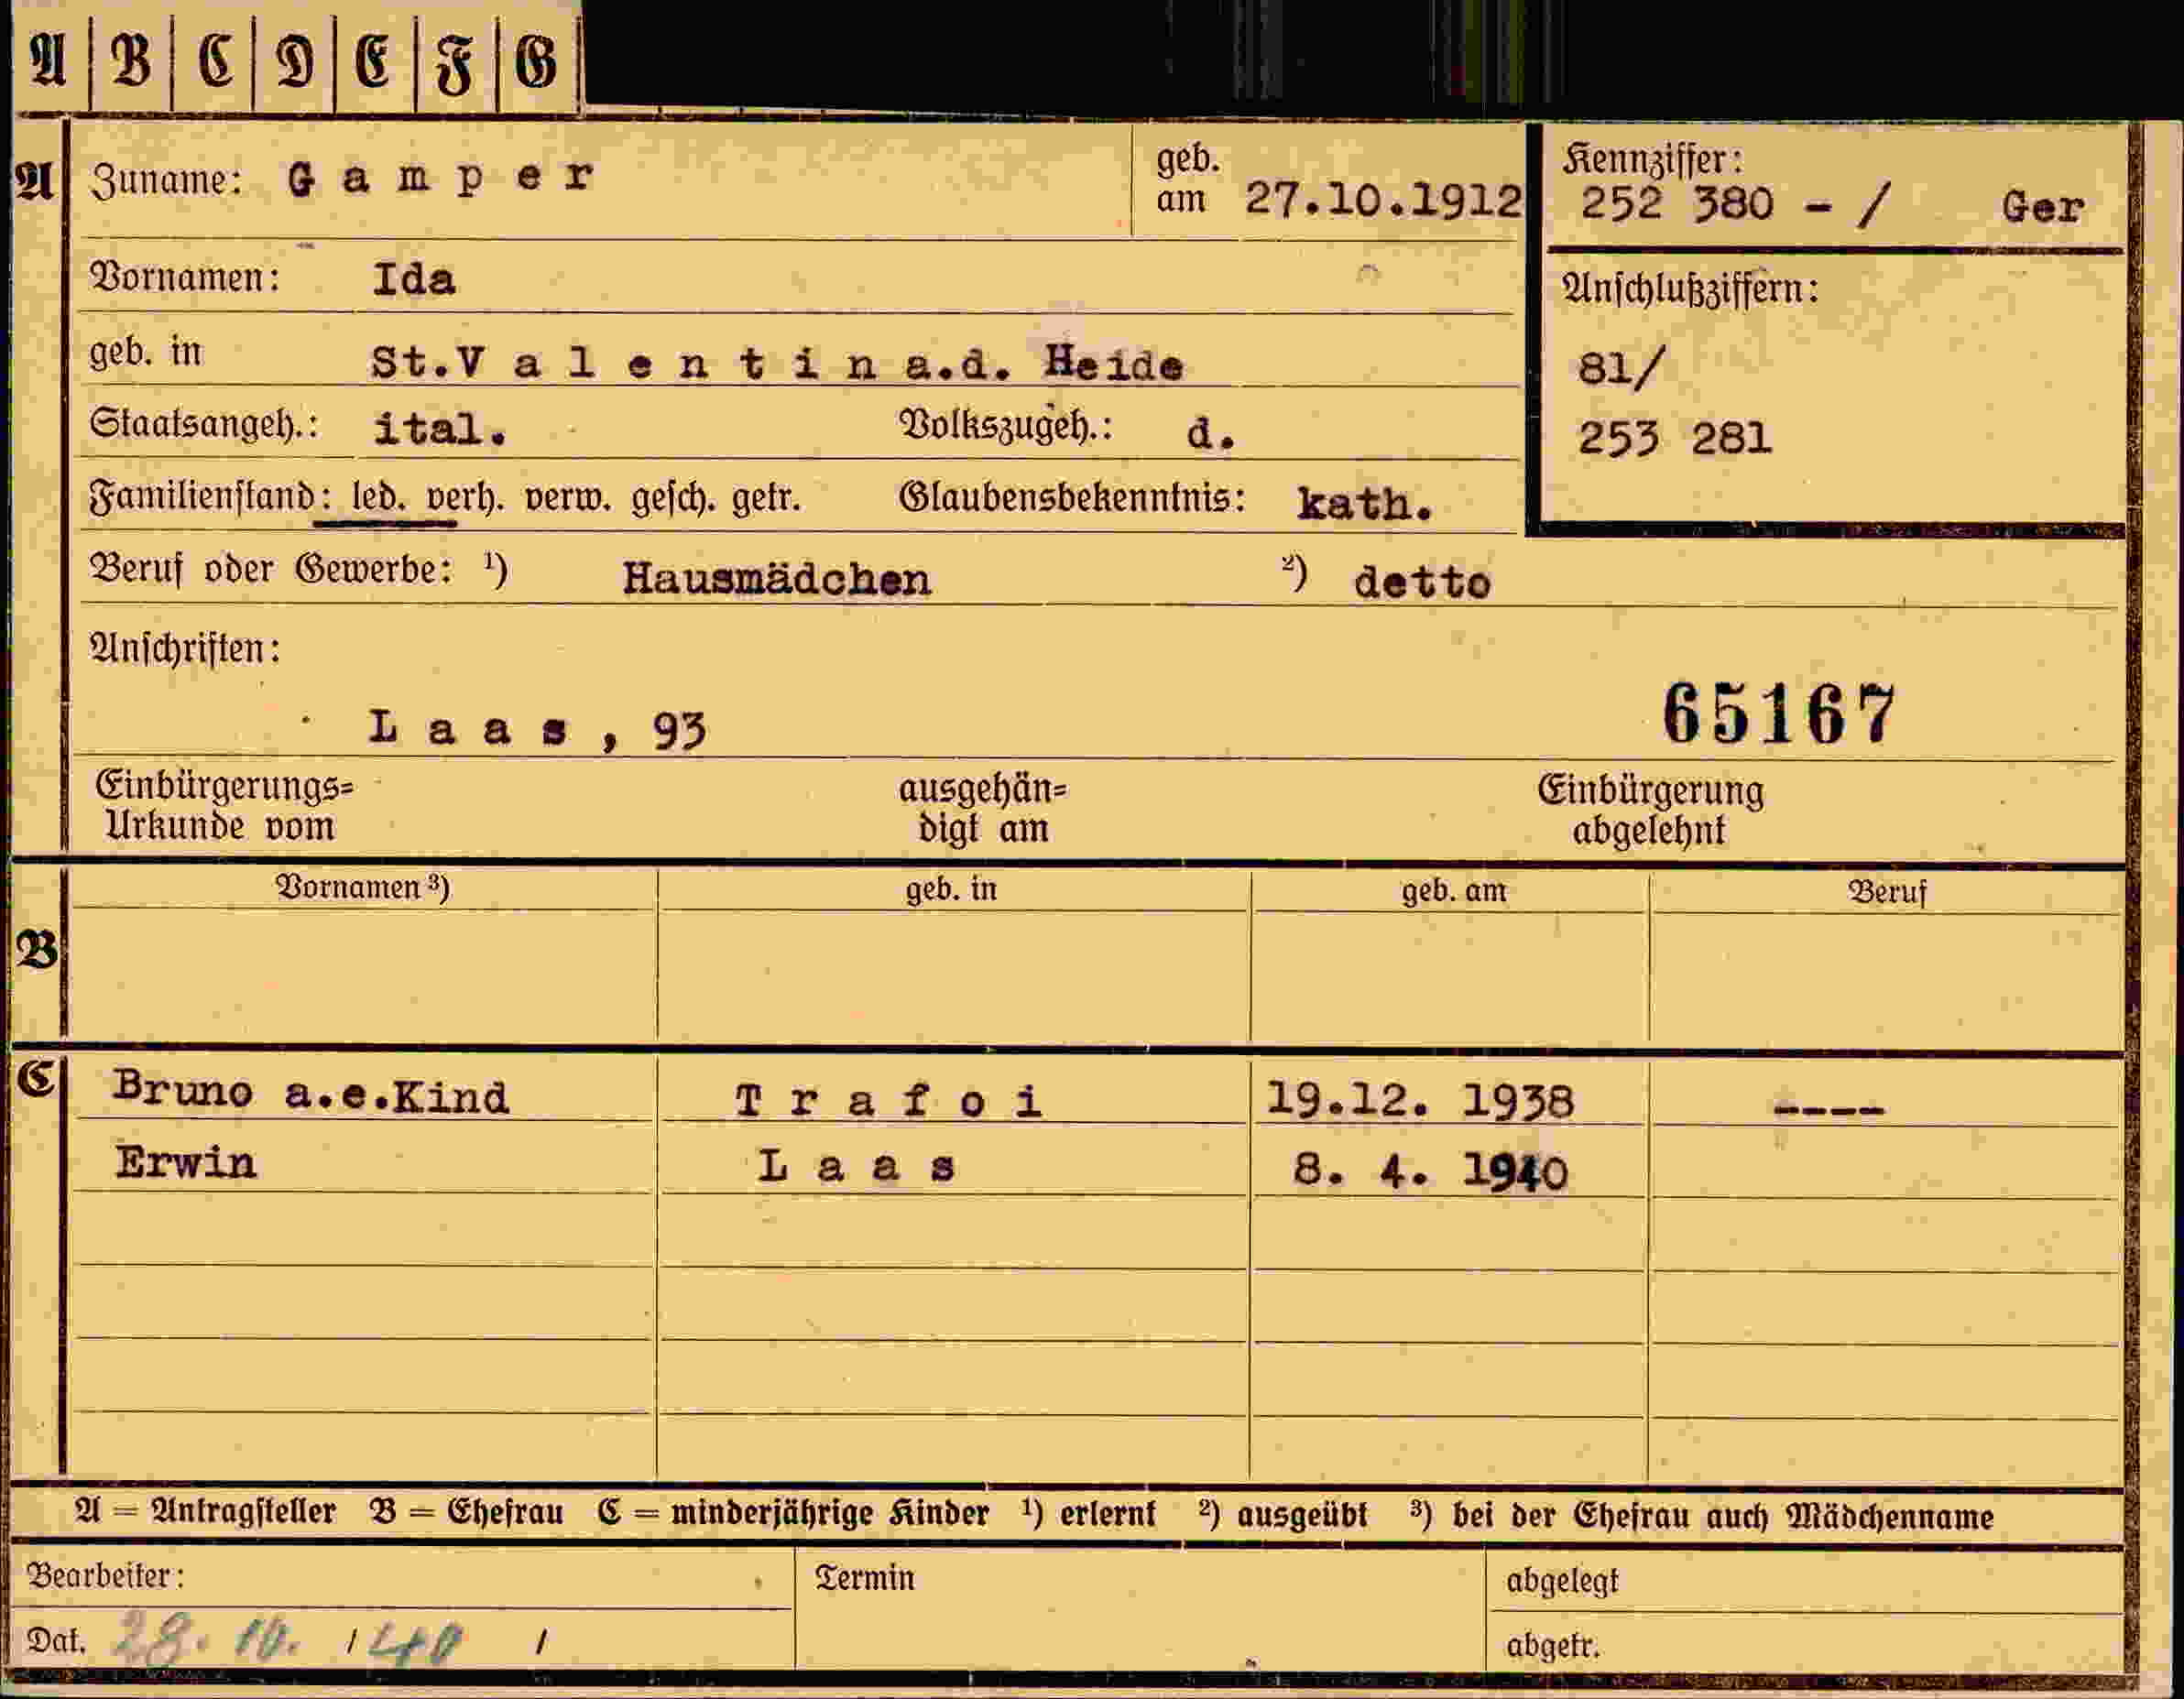 A B C D E F G
A Zuname: Gamper geb. am 27.10.1912 Kennziffer: 252 380 - / Ger
Vornamen: Ida Anschlußziffern:
geb. in St.Valentin a.d. Heide 81/
Staatsangeh.: ital. Volkszugeh.: d. 253 281
Familienstand: led. verh. verw. gesch. getr. Glaubensbekenntnis: kath.
Beruf oder Gewerbe: ¹) Hausmädchen ²) detto
Anschriften:
Laas, 93 65167
Einbürgerungs= ausgehän= Einbürgerung
Urkunde vom digt am abgelehnt
Vornamen ³) geb. in geb. am Beruf
B
C Bruno a.e.Kind Trafoi 19.12. 1938 ----
Erwin Laas 8. 4. 1940
A = Antragsteller B = Ehefrau C = minderjährige Kinder ¹) erlernt ²) ausgeübt ³) bei der Ehefrau auch Mädchenname
Bearbeiter: Termin abgelegt
Dat. 28. 10. / 40 / abgetr.